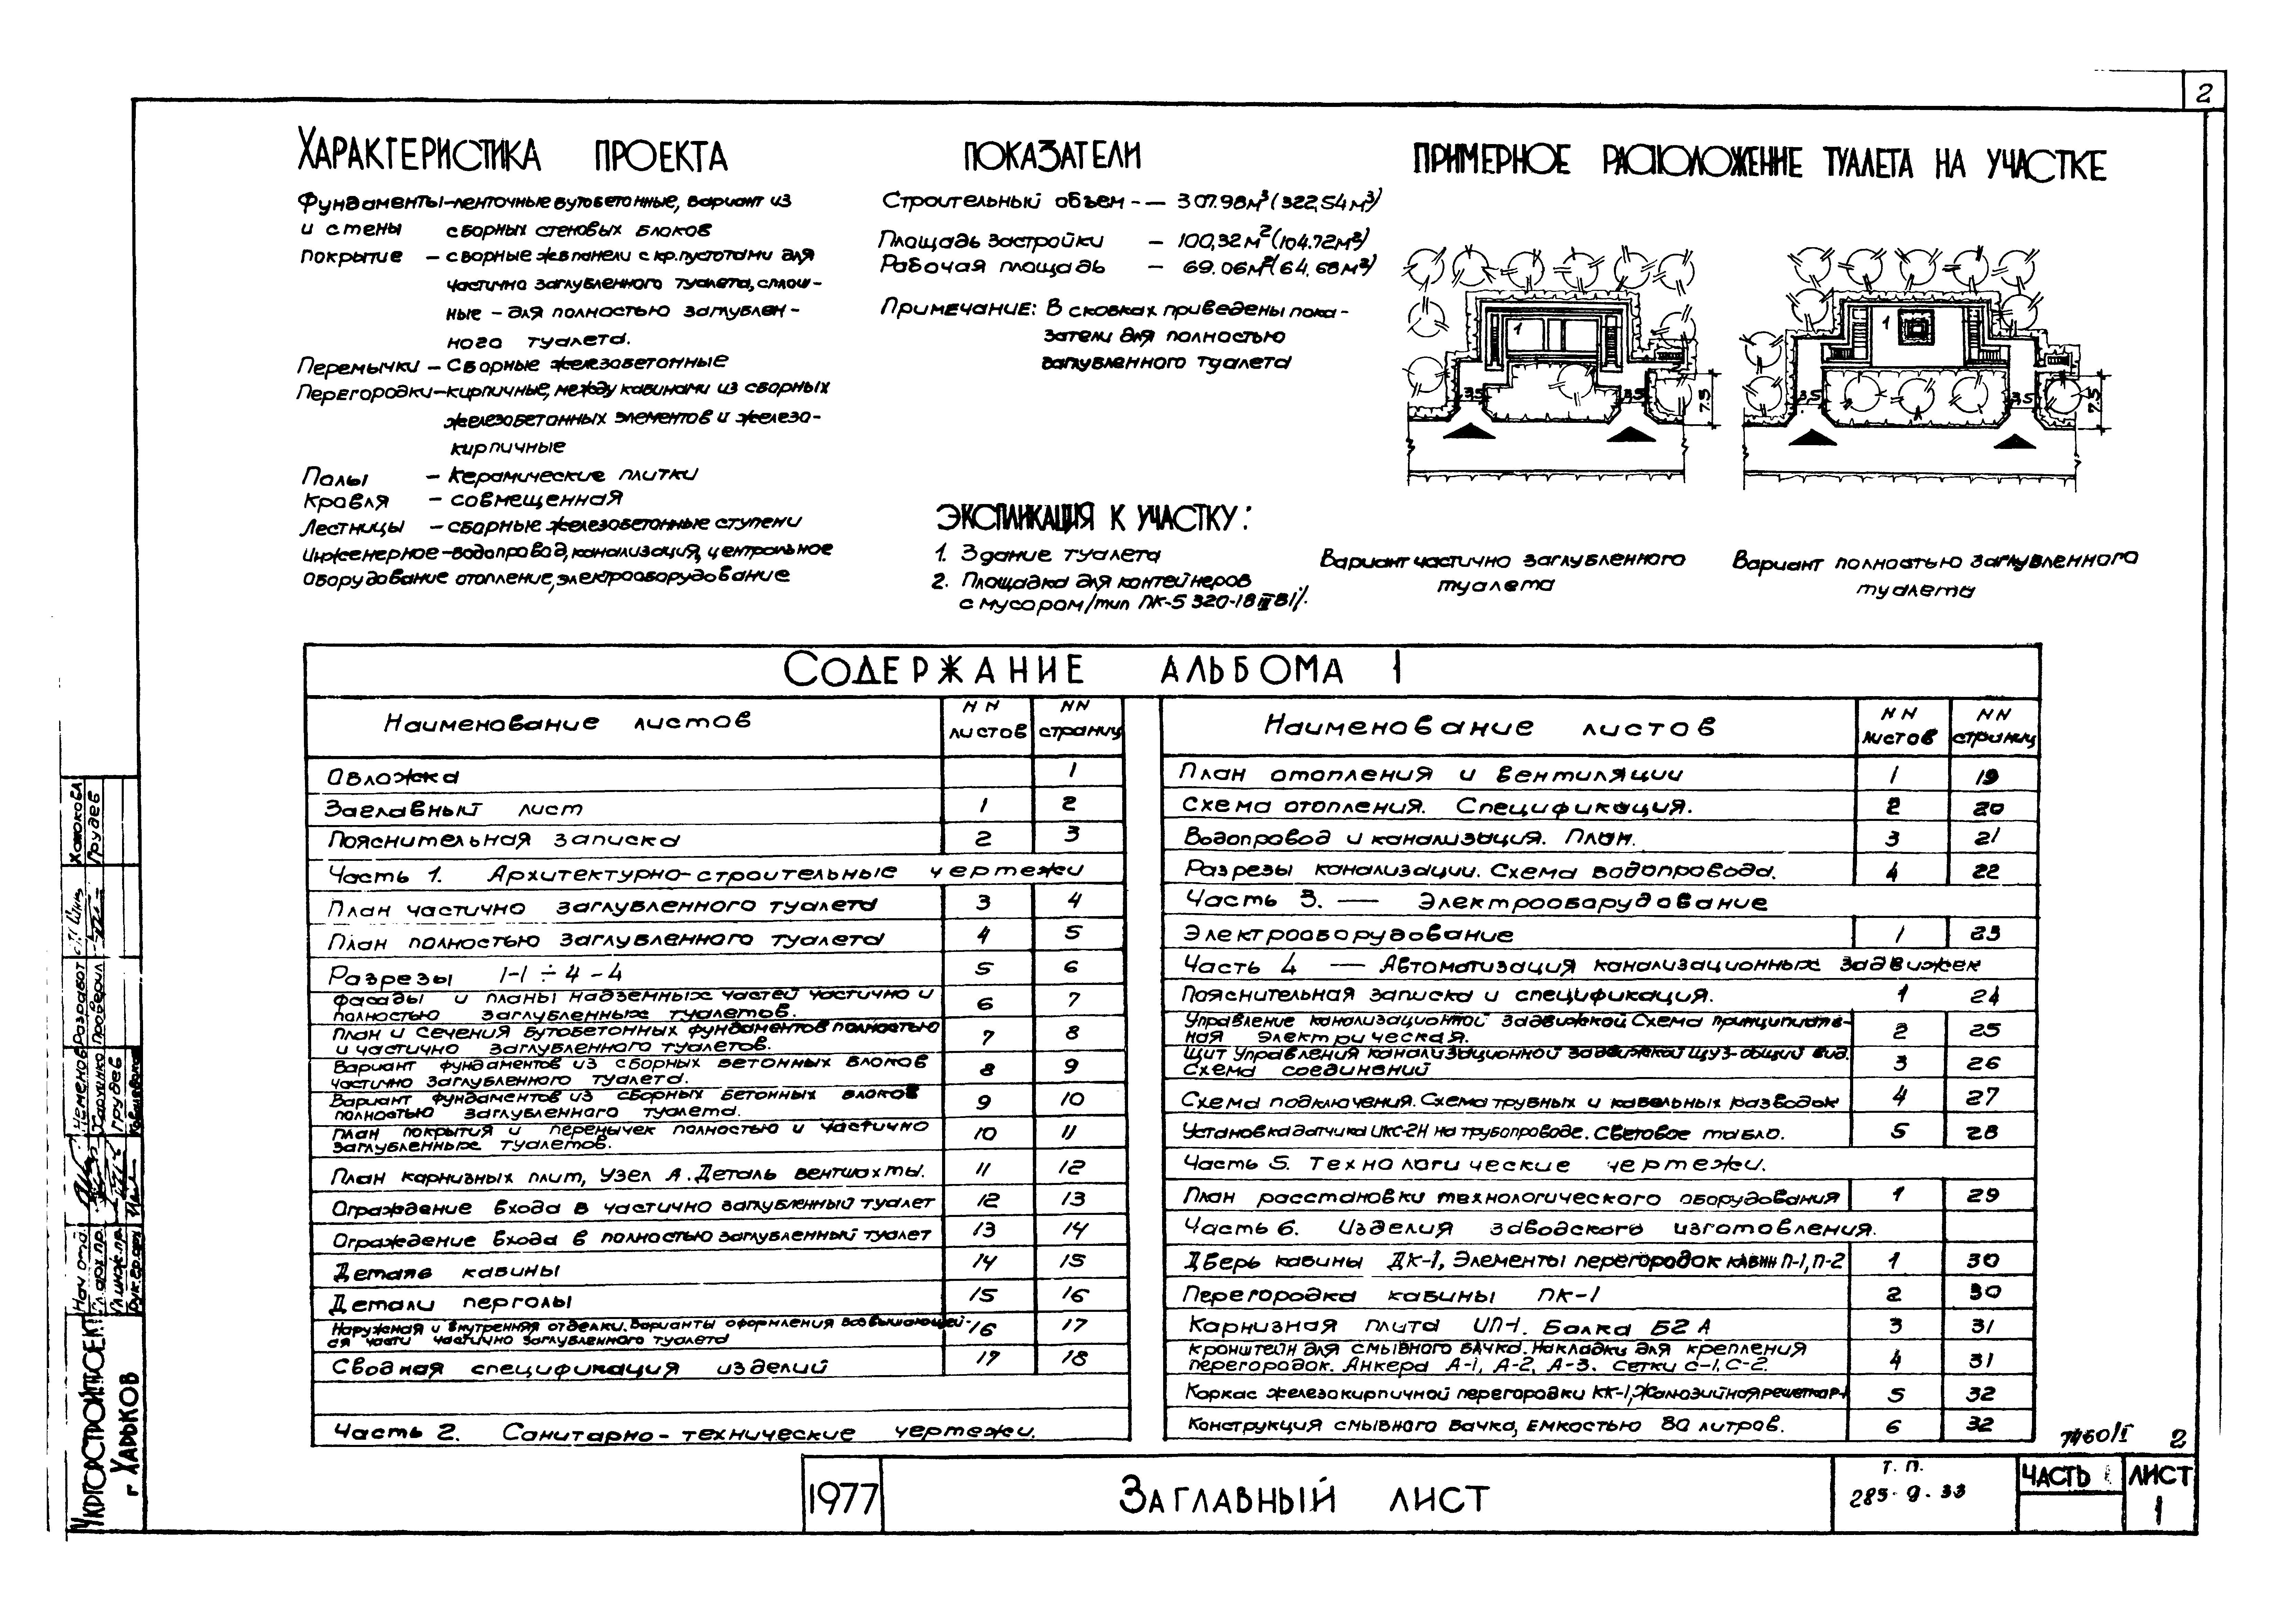 2
Характеристика проекта
Фундаменты-ленточные бутобетонные, вариант из
и стены сборных стеновых блоков
покрытие – сборные жб панели с кр. пустотами для
частично заглубленного туалета, сплош-
ные – для полностью заглублен-
ного туалета.
Перемычки – сборные железобетонные
Перегородки – кирпичные, между кабинами из сборных
железобетонных элементов и железо-
кирпичные
Полы – керамические плитки
Кровля – совмещенная
Лестницы – сборные железобетонные ступени
Инженерное – водопровод, канализация, центральное
Оборудование отопление, электрооборудование
Показатели
Строительный объем - — 307.98м³ (322,54м³)
Площадь застройки – 100,32м² (104.72м²)
Рабочая площадь – 69.06м² (64,68м²)
Примечание: В скобках приведены пока-
затели для полностью
заглубленного туалета
Экспликация к участку:
1. Здание туалета
2. Площадка для контейнеров
с мусором /тип ПК-5 320-18
Примерное расположение туалета на участке
1
3,5
3,5
7.5
1
3,5
3,5
7.5
Вариант частично заглубленного
туалета
Вариант полностью заглубленного
туалета
Содержание альбома 1
Наименование листов NN листов NN страниц
Обложка 1
Заглавный лист 1 2
Пояснительная записка 2 3
Часть 1. Архитектурно-строительные чертежи
План частично заглубленного туалета 3 4
План полностью заглубленного туалета 4 5
Разрезы 1-1 ÷ 4-4 5 6
Фасады и планы надземных частей частично и
полностью заглубленных туалетов. 6 7
План и сечения бутобетонных фундаментов полностью
и частично заглубленного туалетов. 7 8
Вариант фундаментов из сборных бетонных блоков
частично заглубленного туалета. 8 9
Вариант фундаментов из сборных бетонных блоков
полностью заглубленного туалета. 9 10
План покрытия и перемычек полностью и частично
заглубленных туалетов. 10 11
План карнизных плит, Узел А. Деталь вентшахты. 11 12
Ограждение входа в частично заглубленный туалет 12 13
Ограждение входа в полностью заглубленный туалет 13 14
Детали кабины 14 15
Детали перголы 15 16
Наружная и внутренняя отделки. Варианты оформления возвышающей-
ся части частично заглубленного туалета 16 17
Сводная спецификация изделий 17 18
Часть 2. Санитарно-технические чертежи.
Наименование листов NN листов NN страниц
План отопления и вентиляции 1 19
Схема отопления. Спецификация. 2 20
Водопровод и канализация. План. 3 21
Разрезы канализации. Схема водопровода. 4 22
Часть 3. — Электрооборудование
Электрооборудование 1 23
Часть 4 — Автоматизация канализационных задвижек
Пояснительная записка и спецификация. 1 24
Управление канализационной задвижкой Схема принципиаль-
ная электрическая. 2 25
Щит управления канализационной задвижкой ЩУЗ-общий вид.
Схема соединений 3 26
Схема подключения. Схема трубных и кабельных разводок 4 27
Установка датчика ИКС-2Н на трубопроводе. Световое табло. 5 28
Часть 5. Технологические чертежи.
План расстановки технологического оборудования 1 29
Часть 6. Изделия заводского изготовления.
Дверь кабины ДК-1, Элементы перегородок кабин П-1, П-2 1 30
Перегородка кабины ПК-1 2 30
Карнизная плита ИП-1. Балка Б2 А 3 31
Кронштейн для смывного бачка. Накладки для крепления
перегородок. Анкера А-1, А-2, А-3. Сетки С-1, С-2. 4 31
Каркас железокирпичной перегородки КК-1, Жалюзийная решетка Р-1 5 32
Конструкция смывного бачка, емкостью 80 литров. 6 32
7460/I 2
1977
Заглавный лист
Т. П.
283-9-33
Часть 1
Лист
1
Укргорстройпроект
г Харьков
Нач отд.
Гл. арх. пр.
Гл. инж. пр.
Рук. гр. арх
Харченко
Грудев
Разработ
Проверил
Грудев